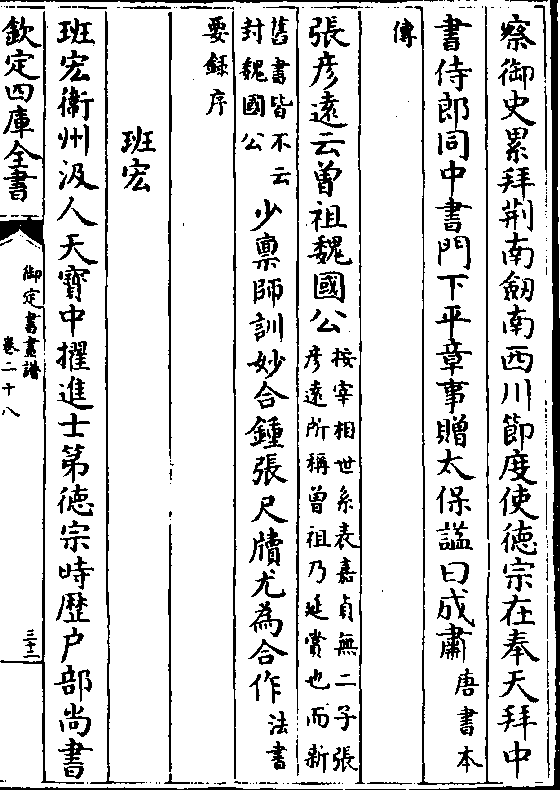 察御史累拜荆南劔南西川節度使德宗在奉天拜中
書侍郎同中書門下平章事贈太保諡曰成肅唐書本
傳
張彦遠云曾祖魏國公按宰相世系表嘉貞無二子張
彦遠所稱曾祖乃延賞也而新
舊書皆不云
封魏國公少禀師訓妙合鍾張尺牘尤為合作法書
要録序
班宏
班宏衛州汲人天寶中擢進士第德宗時歴户部尚書
欽定四庫全書
御定書畫譜
卷二十八
三十二